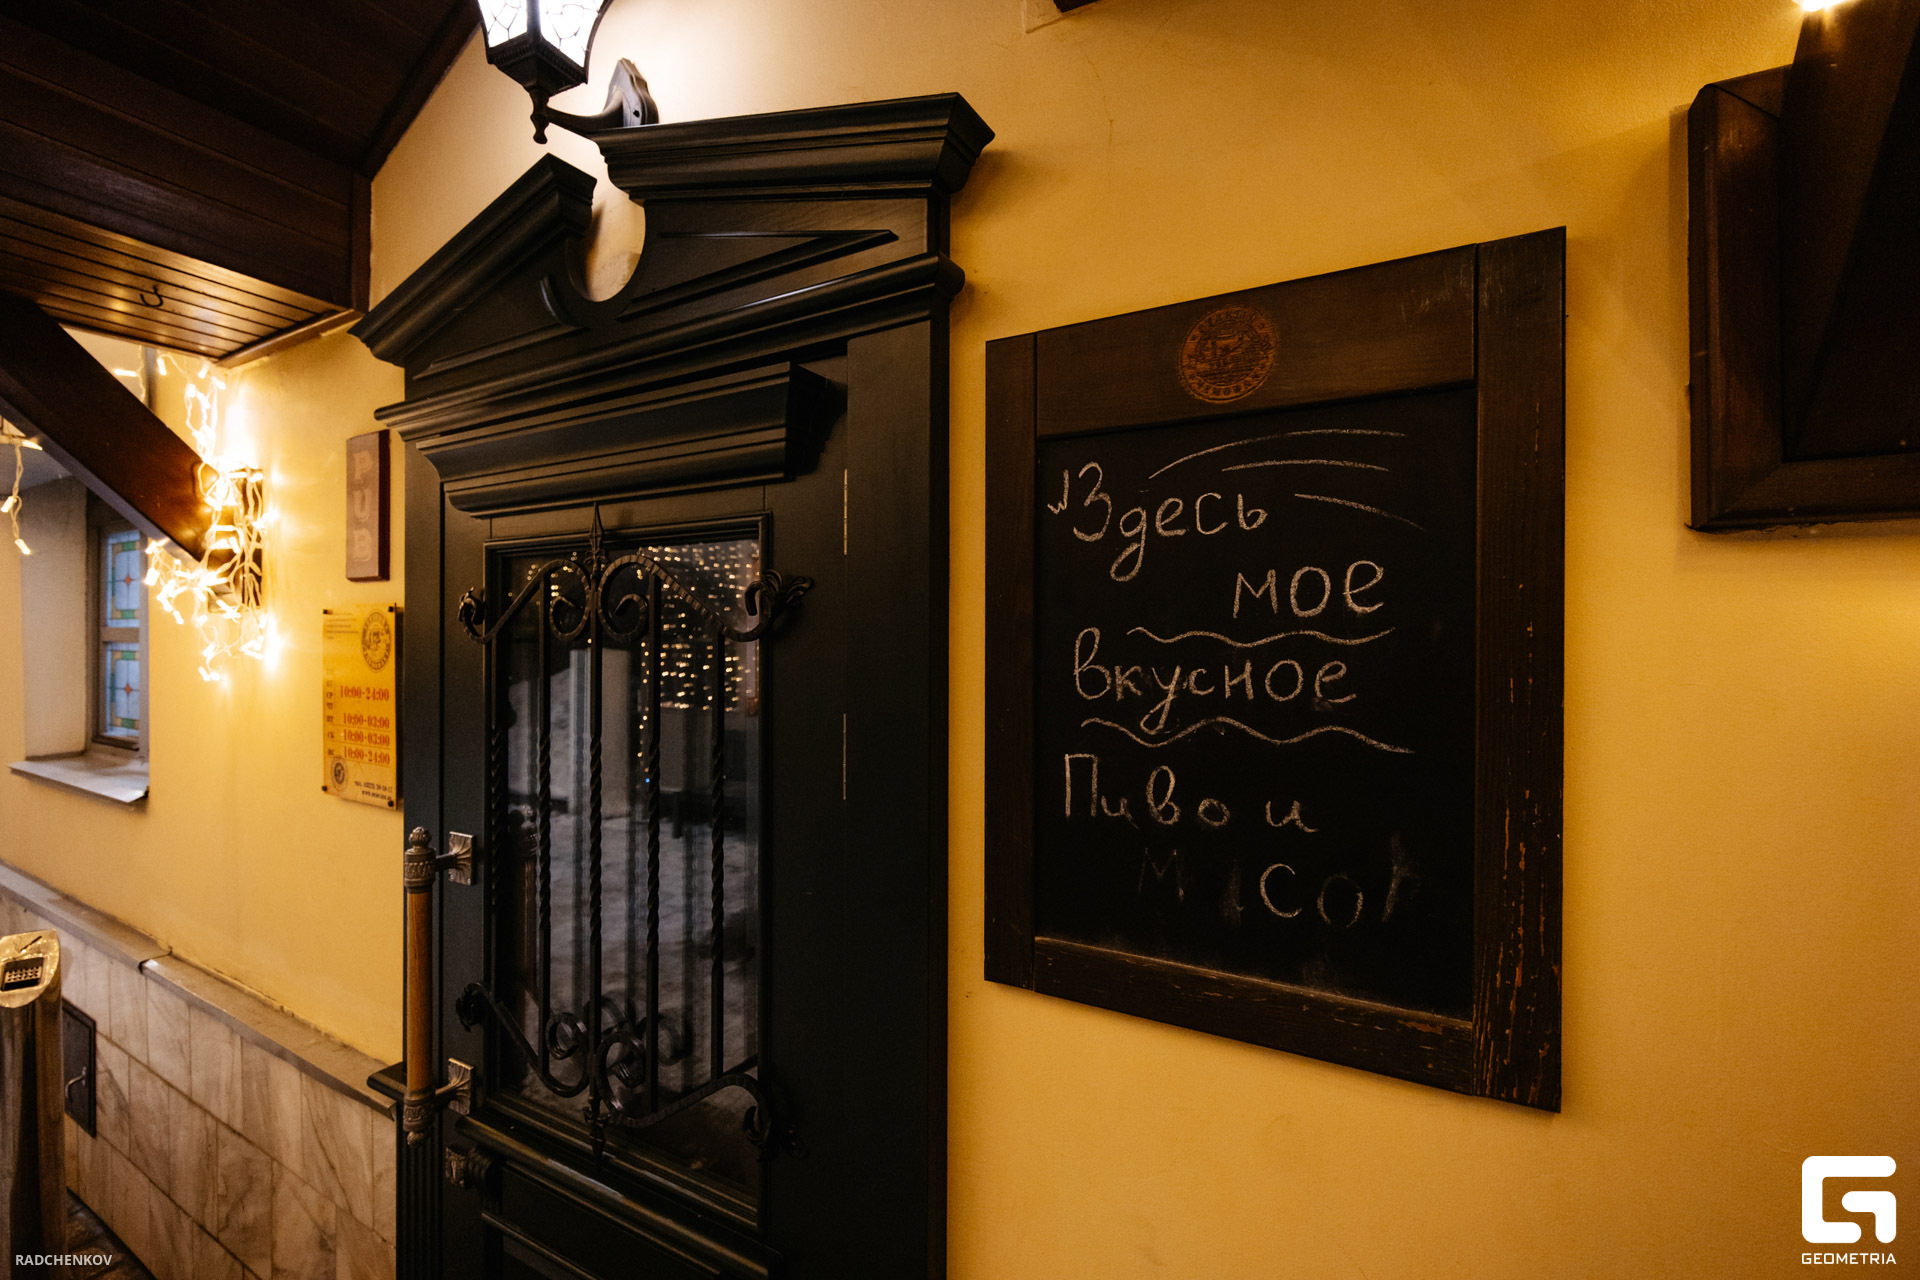 PUB
10:00-24:00
ПТ 10:00-03:00
СБ 10:00-03:00
ВС 10:00-24:00
Здесь
мое
вкусное
Пиво и
RADCHENKOV
GEOMETRIA